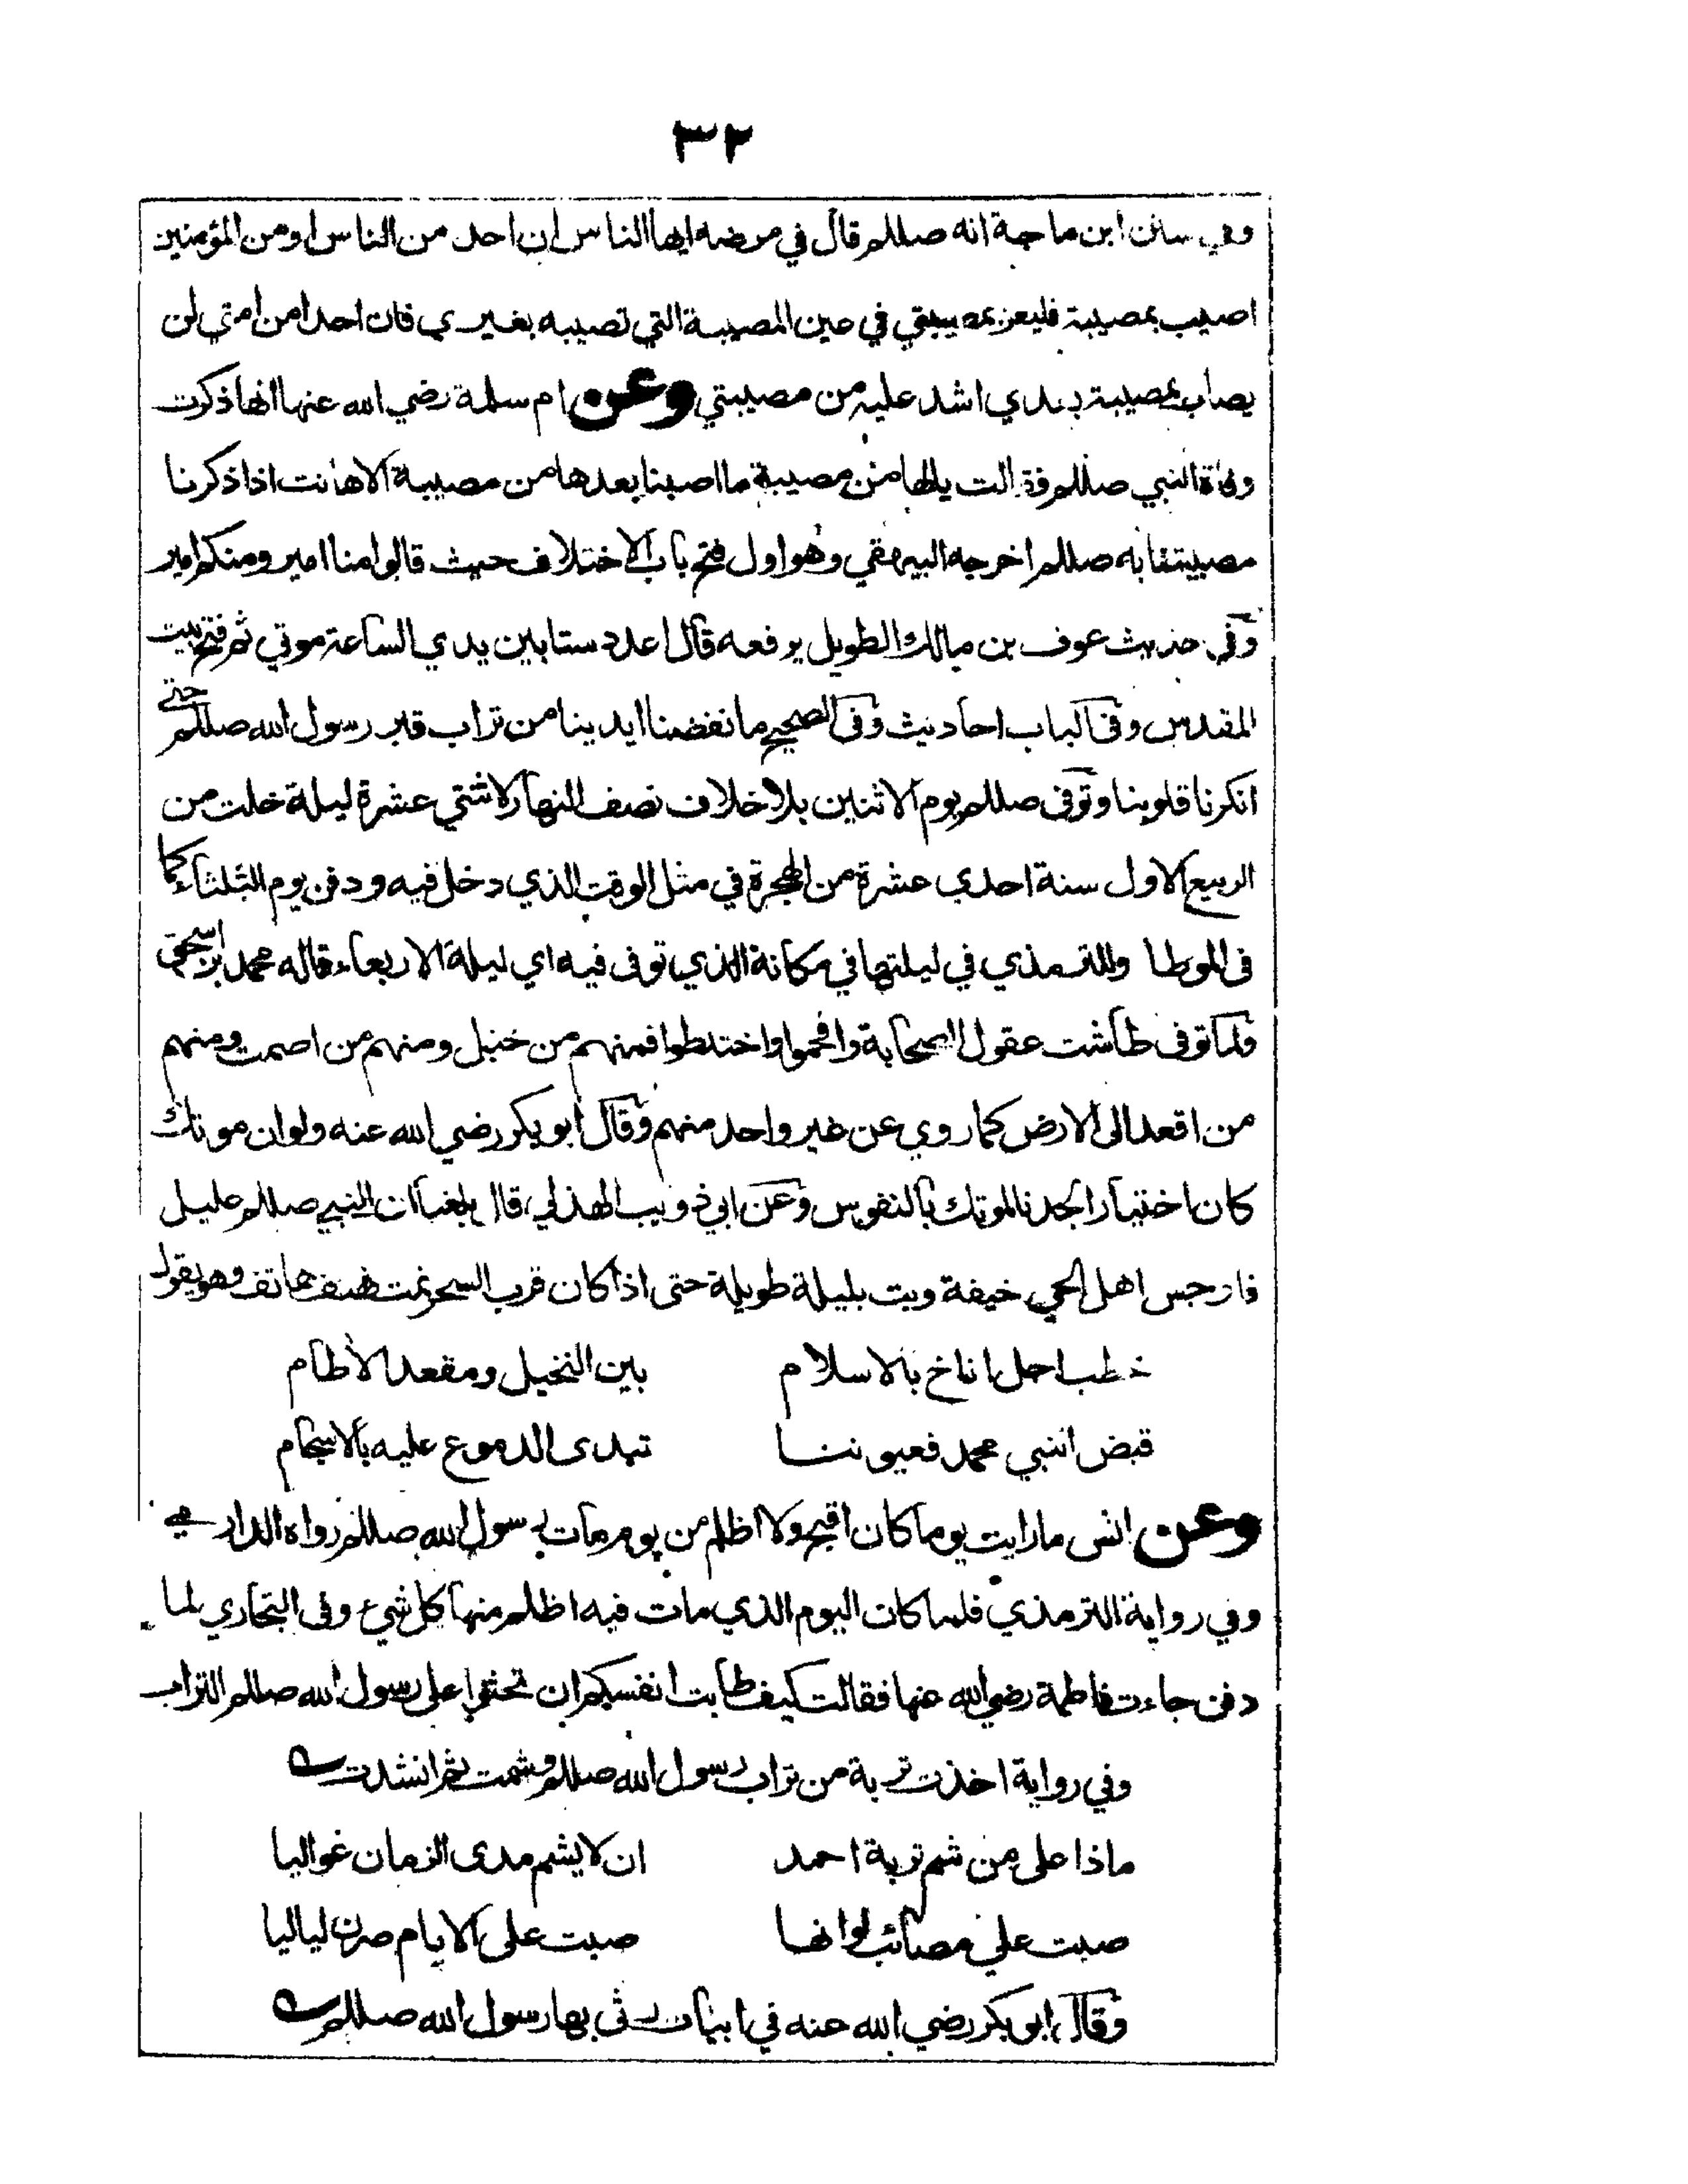 ٣٢
وفي سنن ابن ماجة انه صللم قال في مرضه ايها الناس ان احد من الناس او من المؤمنين
اصيب بمصيبة فليعز بمصيبتي في حين المصيبة التي تصيبه بغيري فان احدا من امتي لن
يصاب بمصيبة بعدي اشد عليه من مصيبتي وعن ام سلمة رضي الله عنها انها ذكرت
وفاة النبي صللم فقالت يالها من مصيبة ما اصبنا بعدها من مصيبة الا هانت اذا ذكرنا
مصيبتنا به صللم اخرجه البيهقي وهو اول فتح باب الاختلاف حيث قالوا منا امير ومنكم امير
وفي حديث عوف بن مالك الطويل يرفعه قال اعدد ستا بين يدي الساعة موتي ثم فتح بيت
المقدس وفى الباب احاديث وفى الصحيح ما نفضنا ايدينا من تراب قبر رسول الله صللم حتى
انكرنا قلوبنا وتوفى صللم يوم الاثنين بلا خلاف نصف النهار لاثنتي عشرة ليلة خلت من
الربيع الاول سنة احدي عشرة من الهجرة في مثل الوقت الذي دخل فيه ودفن يوم الثلثاء كما
فى الموطا وللترمذي في ليلتها في مكانة الذي توفى فيه اي ليلة الاربعاء قاله محمد بن اسحق
ولما توفى طاشت عقول الصحابة وافحموا واختلطوا فمنهم من خبل ومنهم من اصمت ومنهم
من اقعد الى الارض كما روي عن غير واحد منهم وقال ابو بكر رضي الله عنه ولو ان موتك
كان اختيارا لجدنا لموتك بالنفوس وعن ابي ذويب الهذلي قال بلغنا ان النبي صللم عليل
فاوجس اهل الحي خيفة وبت بليلة طويلة حتى اذا كان قرب السحر نمت فهتف هاتف وهو يقول
خطب اجل اناخ بالاسلام بين النخيل ومقعد الاطام
قبض النبي محمد فعيوننا تبدى الدموع عليه بالاسجام
وعن انس ما رايت يوما كان اقبح ولا اظلم من يوم مات رسول الله صللم رواه الدارمي
وفي رواية الترمذي فلما كان اليوم الذي مات فيه اظلم منها كل شيء وفى البخاري لما
دفن جاءت فاطمة رضي الله عنها فقالت كيف طابت انفسكم ان تحثوا على رسول الله صللم التراب
وفي رواية اخذت تربة من تراب رسول الله صللم وشمت ثم انشدت
ماذا على من شم تربة احمد ان لا يشم مدى الزمان غواليا
صبت علي مصائب لو انها صبت على الايام صرن لياليا
وقال ابو بكر رضي الله عنه في ابيات رثى بها رسول الله صللم